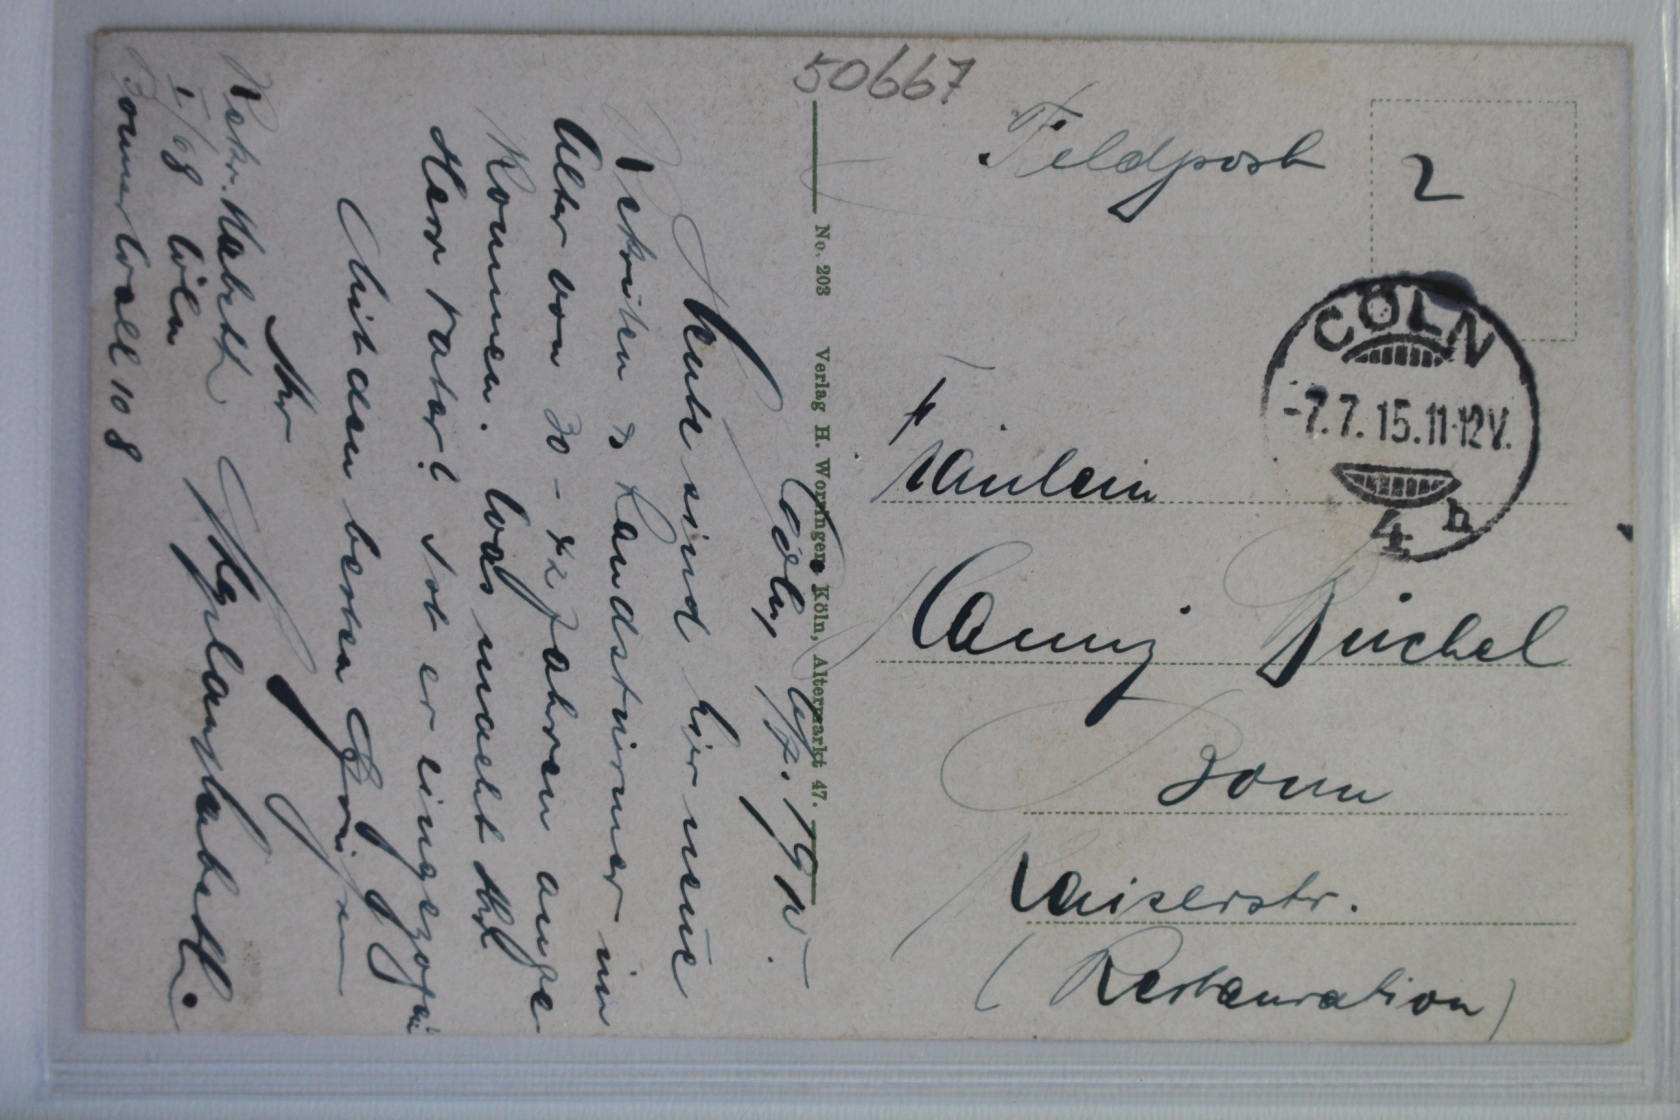 50667
Feldpost
2
CÖLN
-7.7.15.11-12V.
4 h
Fräulein
Bonn
Kaiserstr.
(Restauration)
No. 203 Verlag H. Worringer, Köln, Altermarkt 47.
Cöln,
Heute sind hir neue
Rekruten & Landstürmer im
Alter von 30 - 42 Jahren ange
Kommen. Was macht Ihr
Herr Vater? Ist er eingezogen
Mit den besten Grüßen
Ihr
Rekr.
I/68 Cöln
Bonnerwall 108